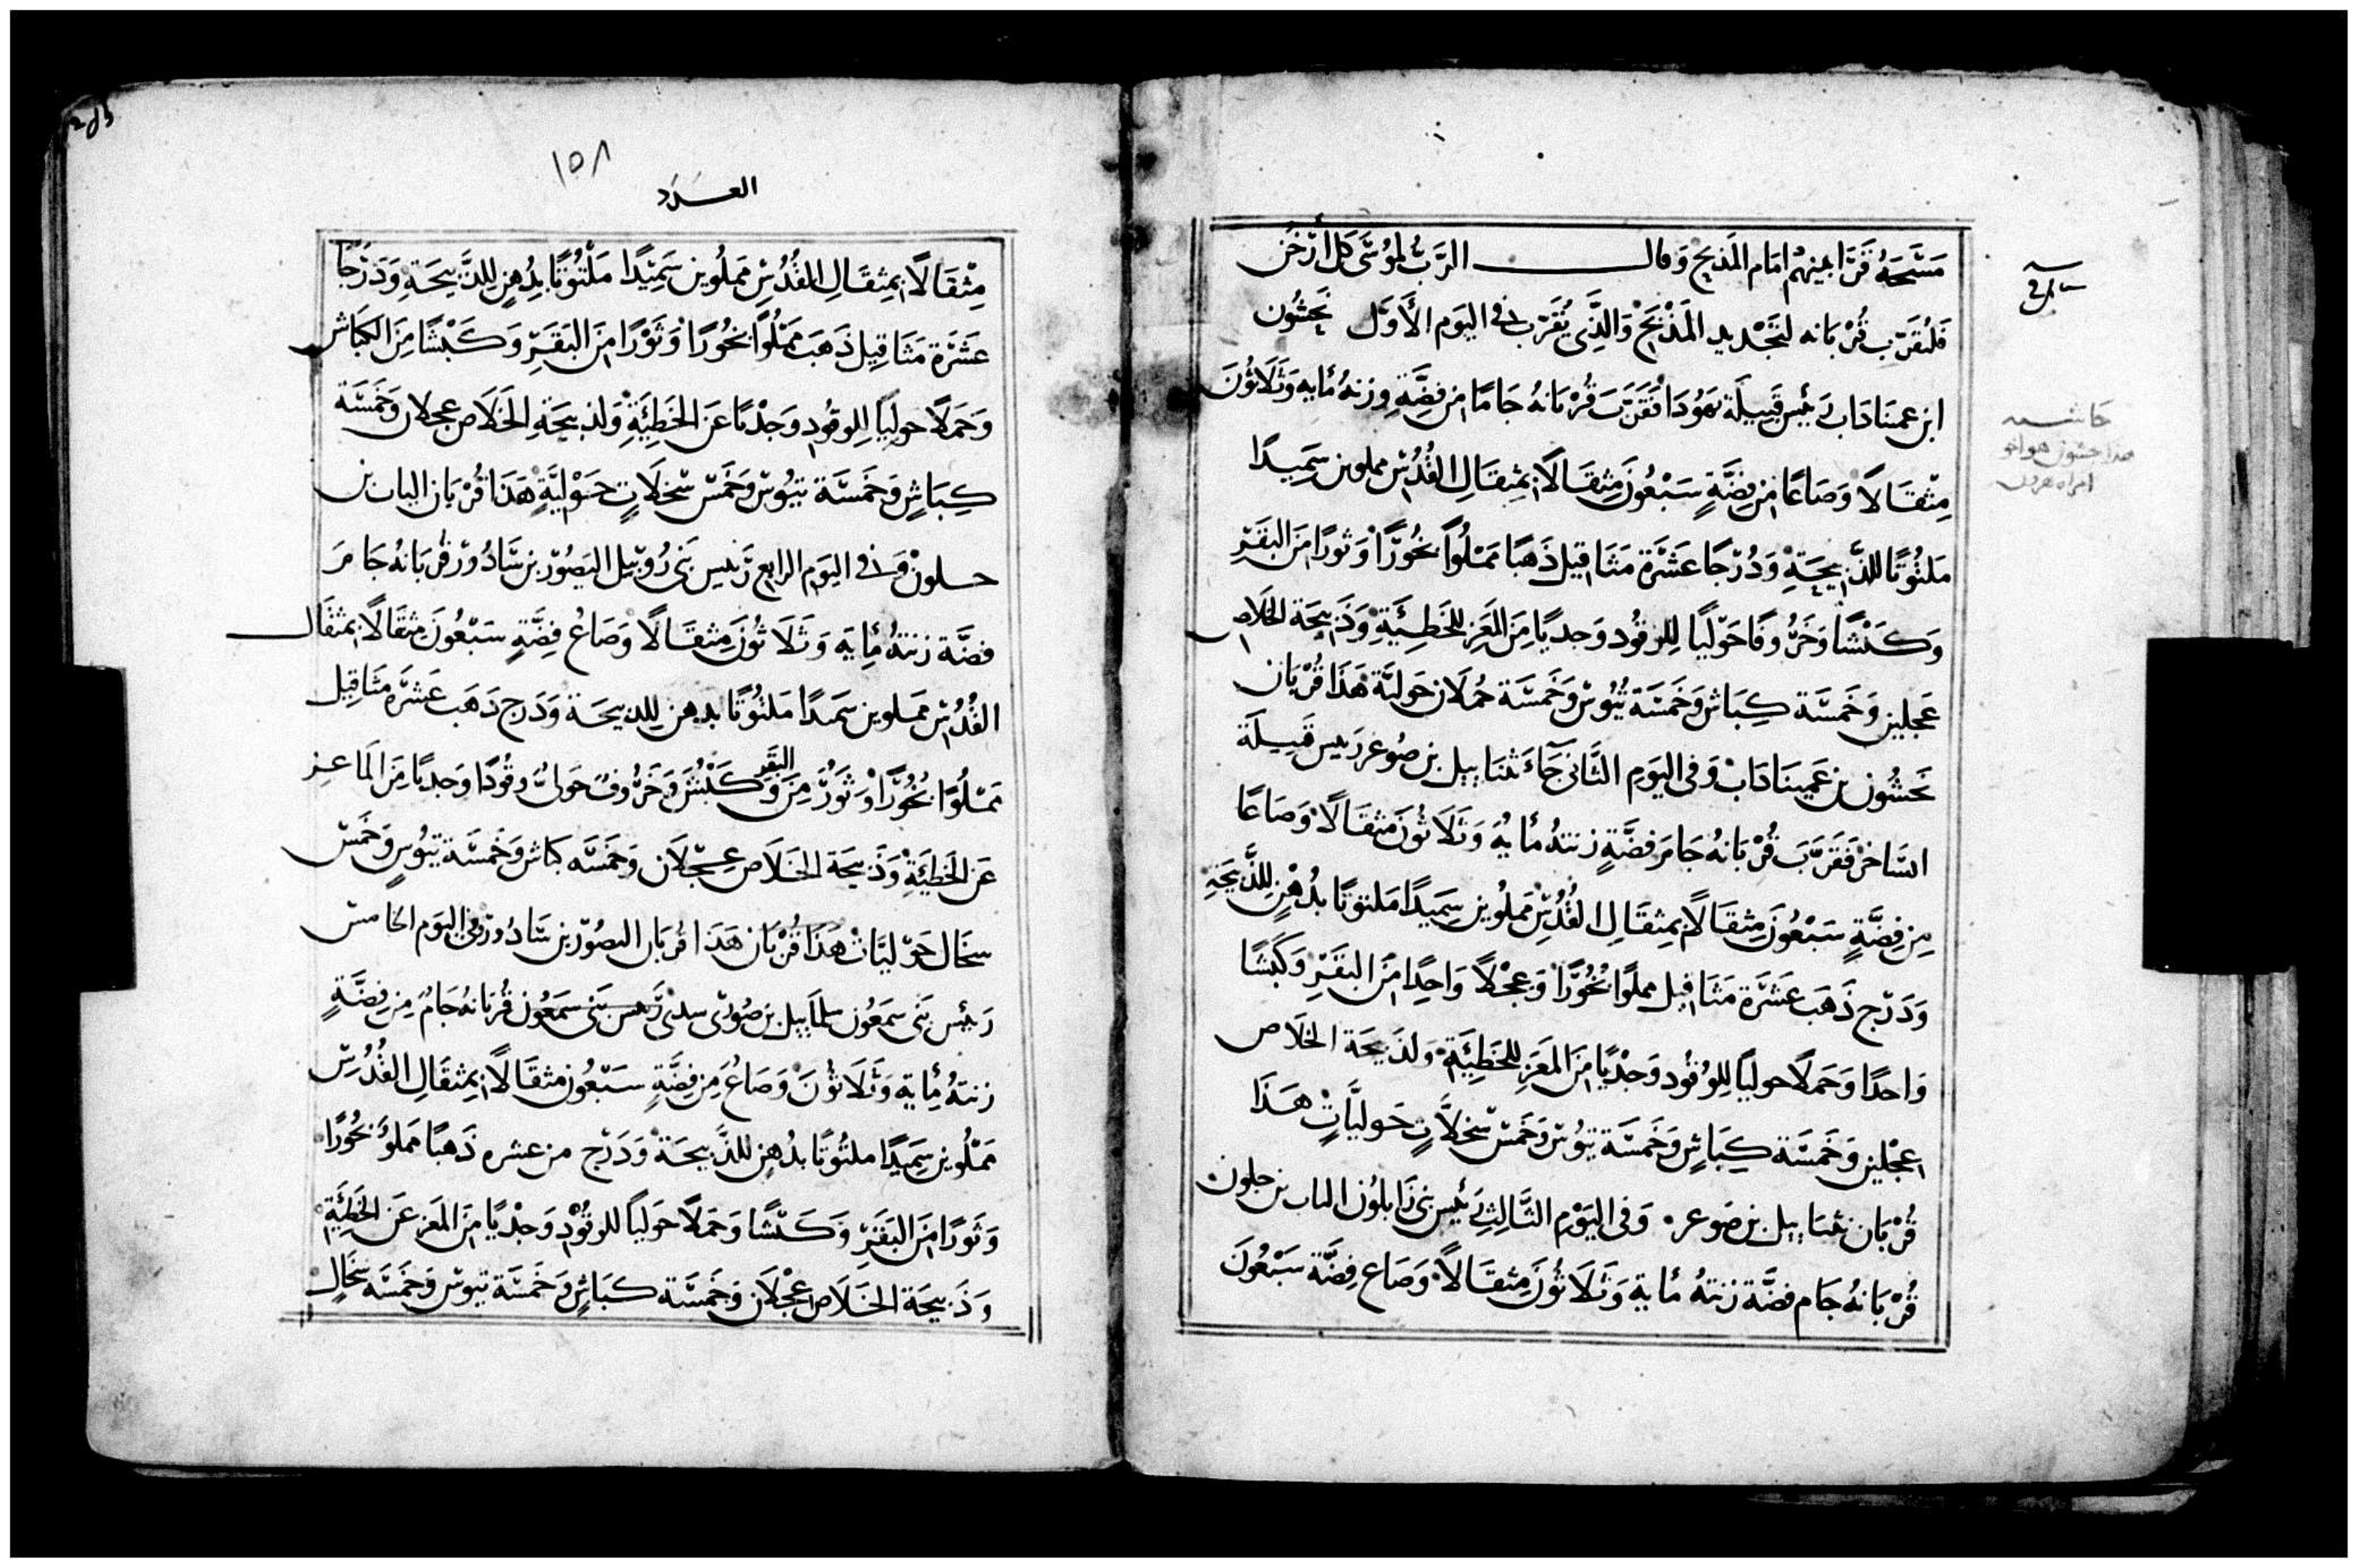 مَسَّحَهُ قَرَّابينهُم امَام المَذبَح وَقالــــــــ الرَّبُ لمُوسَى كل أرْخُن
فَليُقَرّب قُرْبَانه لتَجْديد المَذْبَح وَالذَّى يُقَرّب فى اليَوم الأَوّل نحَشُون
ابن عميناداب رَئيس قَبيلَة يَهُودَا فَقَرَّبَ قُرْبَانهُ جَامًا من فضَّةٍ وزنهُ مأيه وَثَلاَثُونَ
مِثقَالاً وَصَاعًا من فِضَّةٍ سَبْعُونَ مِثقَالاً بمِثقَالِ القُدُسِ مملوين سَمِيدًا
مَلتُوتًا للذَّبيحَةِ وَدُرْجًا عَشَرَة مَثَاقيل ذَهَبًا مَمْلُوًا بخُورًا وَثورًا منَ البَقَرِ
وَكَبْشًا وَخَرُوفًا حَوْليًا لِلوقُود وَجديًا مِنَ المَعَزِ للخَطِيَّةِ وَذَبيحَة الخَلاَص
عجلين وَخَمسَة كِبَاش وَخَمسَة تُيُوس وَخَمسَة حُملاَن حَوليَّة هَذَا قُرْبَان
نَحَشُون بن عَمينَادَاب وَفى اليَوم الثَّانى جَآءَ نثنَاييل بن صُوغر رَييس قَبيلَة
السَّاخر فَقَرَّبَ قُرْبَانهُ جَامَ فضَّةٍ زنتهُ مأيهُ وَثَلاَثُونَ مثقَالاً وَصَاعًا
مِن فِضَّةٍ سَبْعُونَ مِثقَالاً بمِثقَالِ القُدُسِ مَملُوين سَمِيدًا مَلتوتًا بدُهْنٍ لِلذَّبيحَةِ
وَدَرْج ذَهَب عَشَرَة مَثَاقيل مملوًا بخُورًا وَعجْلاً وَاحِدًا منَ البَقَرِ وَكَبشًا
وَاحدًا وَحَمَلاً حوليًا لِلوُقُود وَجْديًا منَ المَعَزِ للخَطِيئَةِ وَلذَبيحَة الخَلاَص
عجْلين وَخَمسَة كِبَاشٍ وَخَمسَة تيُوس وَخَمْس سَخلاَتٍ حَوليَّاتٍ هَذَا
قُرْبَان نثنَاييل بن صَوغر وَفى اليَوْم الثَّالِث رَئيس بنى زَابلُون الياب بن حلون
قُرْبَانهُ جَام فضَّة زنتهُ مأية وَثَلاَثُونَ مِثقَالاً وَصَاع فِضَّة سَبْعُونَ
حَاشيه
هذا حشون هو اخو
امراه هرون
١٥٨
العــدد
مِثْقَالاً بمِثقَالِ القُدُسِ مَملُوين سَمِيْدًا مَلْتُوتًا بدُهنٍ لِلذَّبيحَةِ وَدَرْجًا
عَشَرَة مَثَاقِيل ذَهَب مَمْلُوًا بخُورًا وَثَوْرًا منَ البَقَرِ وَكَبْشًا مِنَ الكِبَاش
وَحَمَلاً حوليًا لِلوقُود وَجدْيًا عَنَ الخَطِيَّةِ وَلذبيحَةِ الخَلاَص عجلان وَخَمسَة
كِبَاشٍ وَخَمسَة تيُوس وَخَمس سْخَلاَتٍ حَوْليَّةٍ هَذَا قُرْبَان الياب بن
حلون وَفى اليَوم الرابع رَئيس بَنى رُوبيل اليَصُوْر بن شَادُوْر قُربَانهُ جَامَ
فضَّة زنتهُ مأيَة وَثَلاَثُونَ مثقَالاً وَصَاعُ فِضَّةٍ سَبْعُونَ مثقَالاً بمثقَالــــ
القُدُس مملوين سَميدًا مَلتُوتًا بدهن للذبيحَة وَدَرج ذَهَب عَشَرَة مَثَاقِيل
مَمْلُوًا بخُورًا وَثَوْرُ مِنَ البَقَر وَكَبْش وَخَرُوف حَولى وقُودًا وَجديًا مِنَ المَاعز
عَنَ الخَطِيَةِ وَذَبيحَة الخَلاَص عجْلاَن وَخَمسَه كباش وَخَمسَة تيُوسٍ وَخَمْس
سخَال حَوْليَّات هَذَا قُرْبَان هَذَا قُربَان اليصُوْر بن شَادُور وَفى اليَوم الخامس
رَئيس بَنى سمَعُون سلمَاييل بن صُورى سدى رَئيس بَنى سمَعُون قُربَانهُ جَامُ مِن فِضَّةٍ
زنتهُ مأيَة وَثَلاَثُونَ وَصَاعُ مِن فِضَّةٍ سَبْعُون مثقَالاً بمِثقَالِ القُدُسِ
مَمْلُوين سَمِيدًا ملتُوتًا بدُهنٍ لِلذَّبيحَةِ وَدَرْج من عشره ذَهبًا مَملوُ بخُورًا
وَثَورًا منَ البَقَرِ وَكَبْشًا وَحَمَلاً حَوليًا للوقُوْدِ وَجْديًا منَ المَعَز عَنَ الخَطِيَّةِ
وَذَبيحَة الخَلاَص عجْلاَن وَخَمسَة كبَاشٍ وَخَمسَة تيوس وَخَمسَه سَخَال